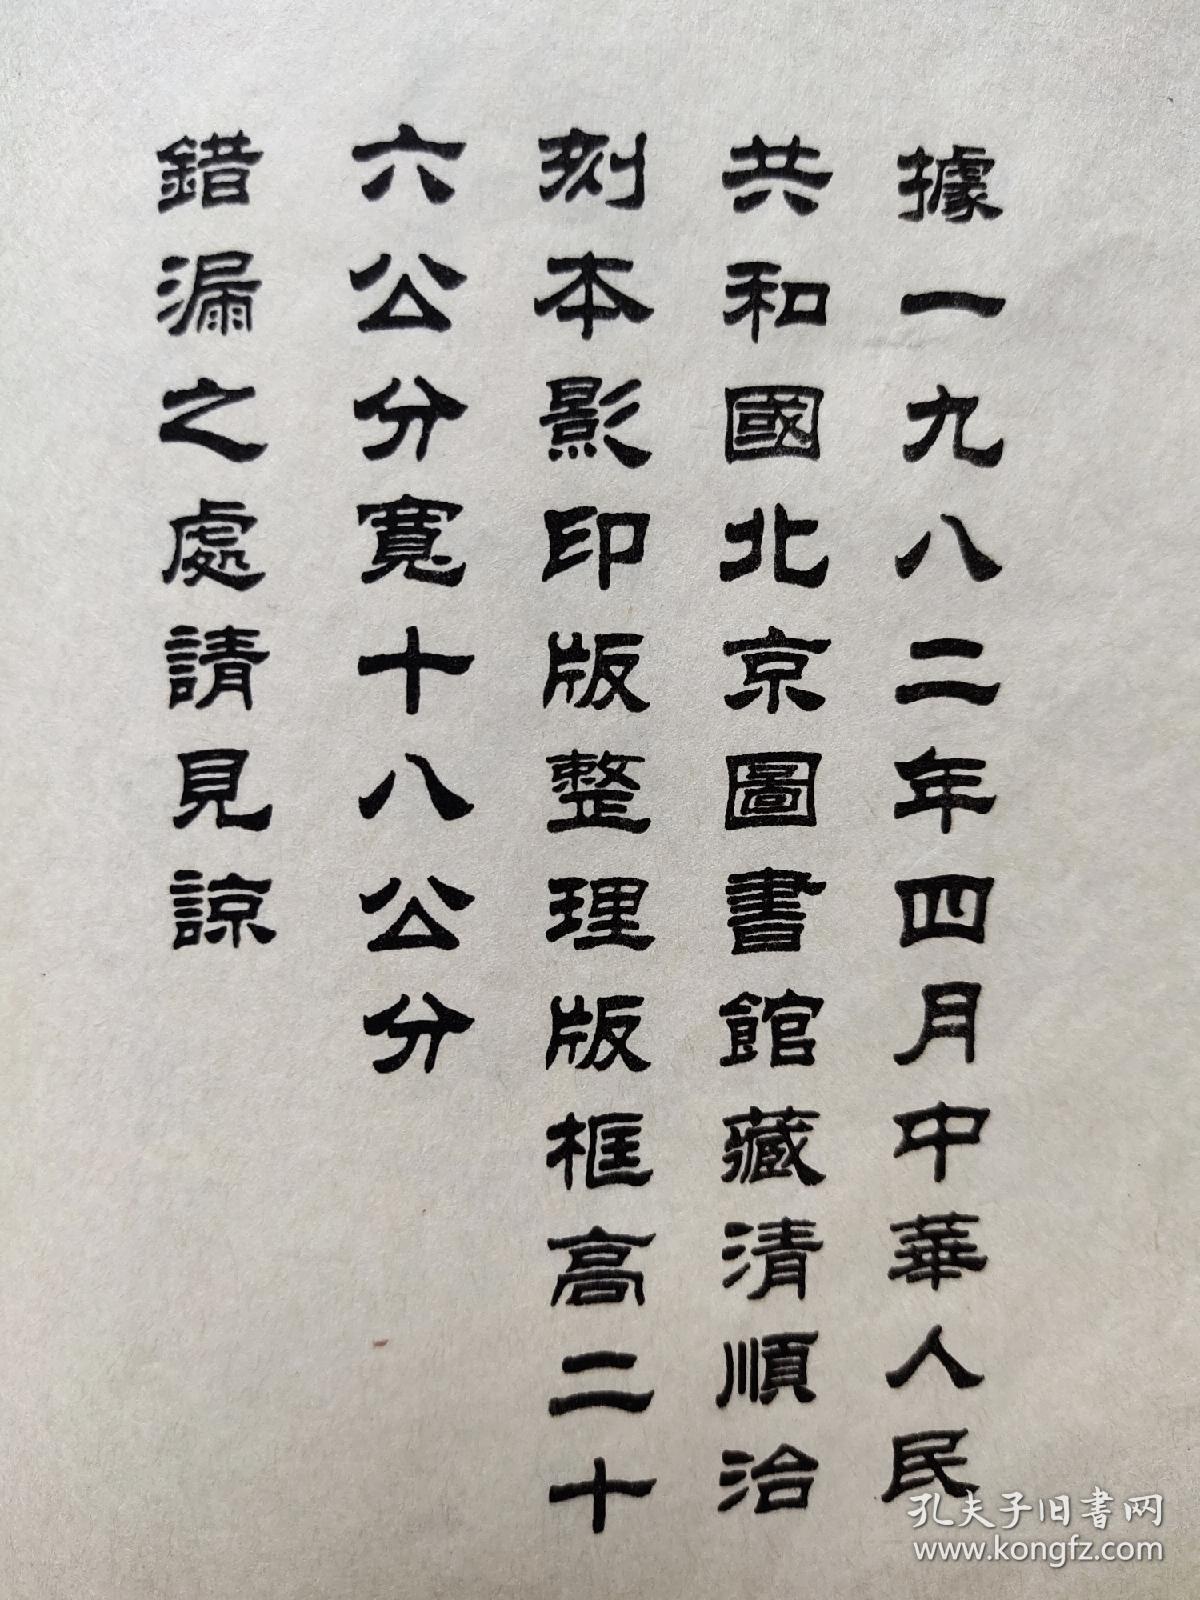 據一九八二年四月中華人民
共和國北京圖書館藏清順治
刻本影印版整理版框高二十
六公分寬十八公分
錯漏之處請見諒
孔夫子旧书网
www.kongfz.com